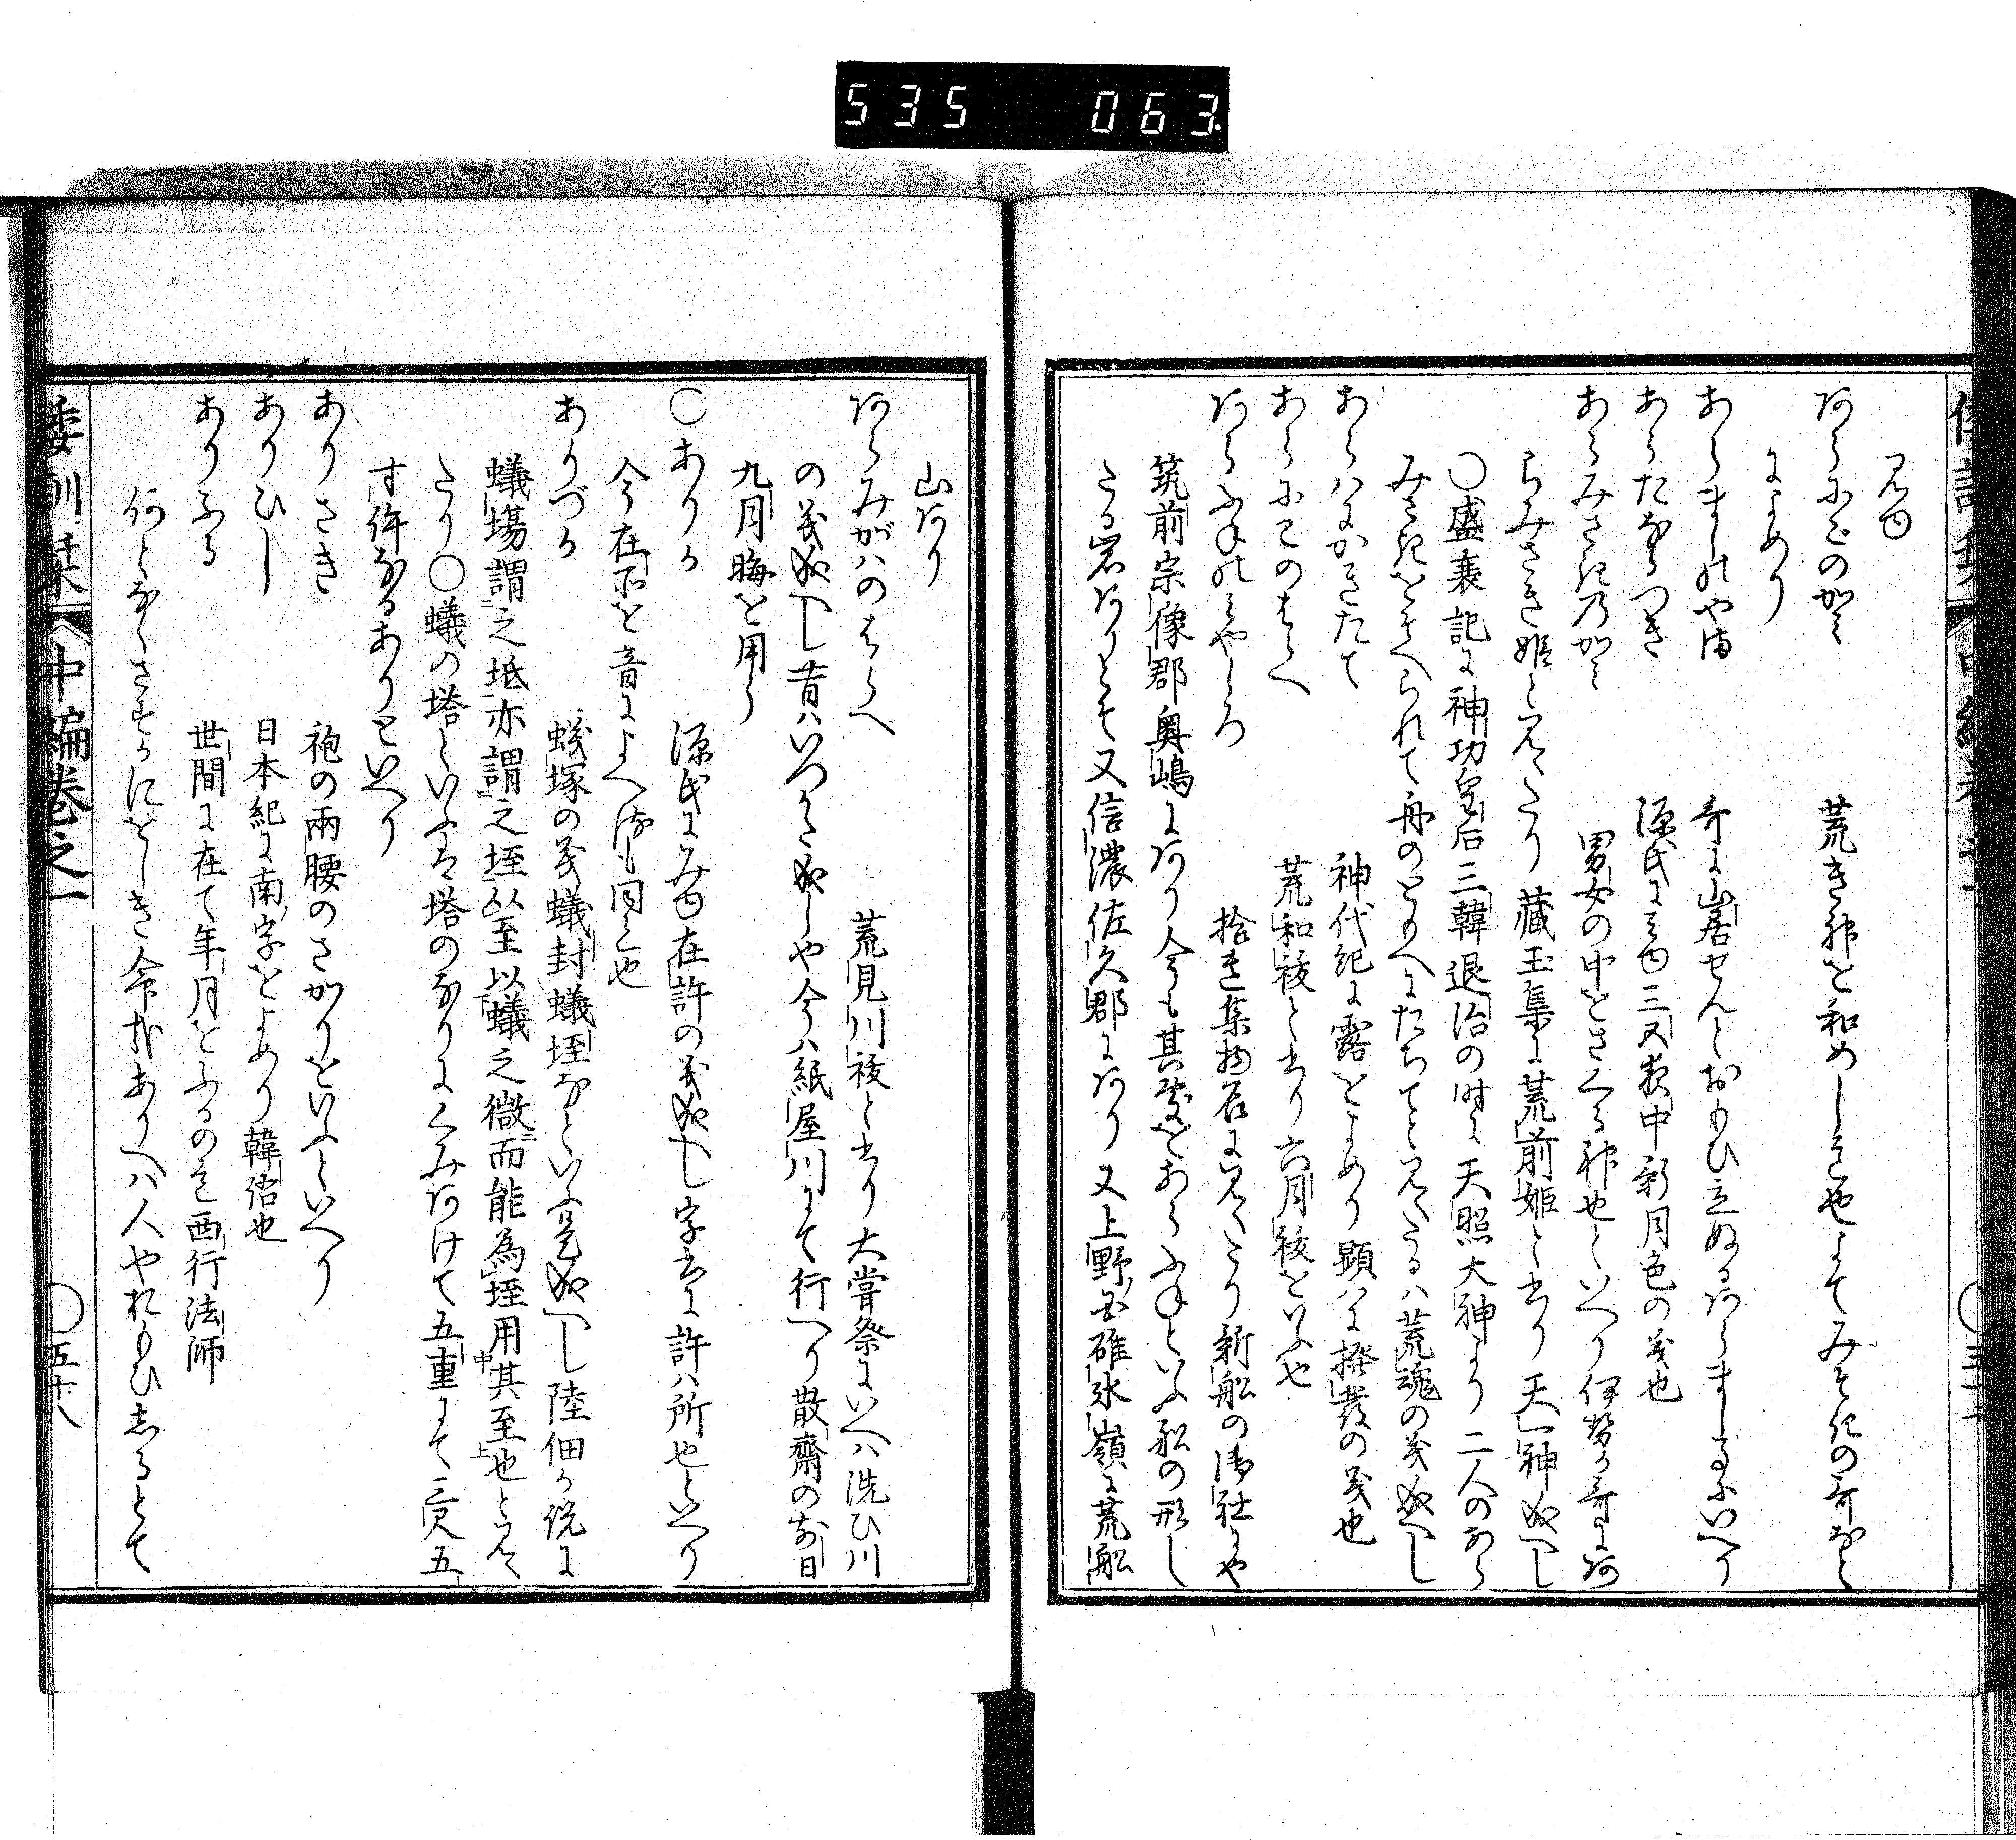 535 063
見ゆ
あらにごのかみ 荒き神を和めし名也よてみそぎの哥などに
によめり
あらましのやま 哥に山居せんとおもひ立ぬるあらましなといへり
あらたなるつき 源氏にみゆ三五夜中新月色の義也
あらみさきのかみ 男女の中をさくる神也といへり伊勢か哥にあ
らみさき姫と見えたり藏玉集に荒前姫と出り天一神成へし
○盛衰記に神功皇后三韓退治の時に天照大神より二人のあら
みさきをそへられて舟のともへにたちてと見えたるハ荒魂の義成へし
あらハにかきたて 神代紀に露とよめり顯ハに撥發の義也
あらにこのはらへ 荒和祓と出り六月祓をいふ也
あらふねのみやしろ 拾遺集物名に見えたり新船の御社にや
筑前宗像郡奥嶋にあり今も其處をあらふねといふ船の形し
たる岩ありとそ又信濃佐久郡にあり又上野國碓氷嶺に荒船
山あり
あらみがハのはらへ 荒見川祓と出り大嘗祭にいへハ洗ひ川
の義成へし昔ハいつくなりしや今ハ紙屋川にて行へり散齋のお日
九月晦を用う
○ありか 源氏にみゆ在許の義成へし字書に許ハ所也といへり
今在所を音によへるも同し也
ありづか 蟻塚の義蟻封蟻垤なといふ是成へし陸佃か説に
蟻塲謂之坻亦謂之垤以至以蟻之微而能為垤用其至也と見え
たり○蟻の塔といふは塔のなりによくみあけて五重にて二間五
寸許なるありといへり
ありさき 袍の兩腰のさかりをいふといへり
ありひし 日本紀に南字をよめり韓語也
ありふる 世間に在て年月をふるの意西行法師
何となくさすかにをしき命哉ありへハ人やおもひしるとて
倭訓栞 中編巻之一 ○五十八